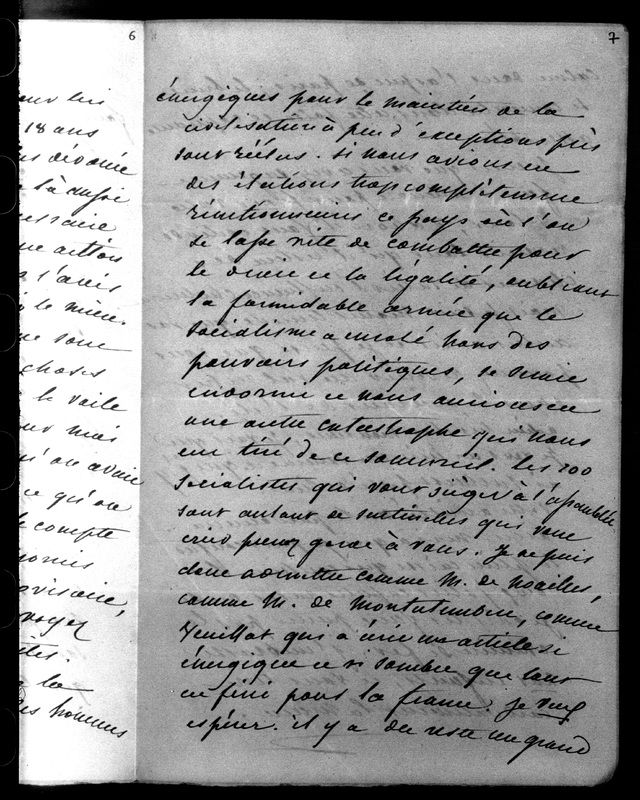 6
7
énergiques pour le maintien de la
civilisation à peu d'exceptions près
sont réélus. Si nous avions eu
des élections trop complètement
réactionnaires ce pays où l'on
se lasse vite de combattre pour
le droit et la légalité, oubliant
la formidable armée que le
socialisme a enrolé hors des
pouvoirs politiques, se serait
endormi et nous aurions eu
une autre catastrophe qui nous
eut tiré de ce sommeil. Les 200
socialistes qui vont siéger à l'assemblée
sont autant de sentinelles qui vont
crier prenez garde à vous. Je ne puis
donc admettre comme M. de Noailles,
comme M. de Montalembert, comme
Veuillot qui a écrit un article si
énergique et si sombre que tout
est fini pour la france. je veux
espérer. il y a du reste un grand
our lui
18 ans
là aussi
cessaire
une action
l'avis
le mien.
ne sont
choses
le voile
our moi
qu'on avait
ce qu'on
le compte
omis
ovisoire,
voyez
la
des hommes